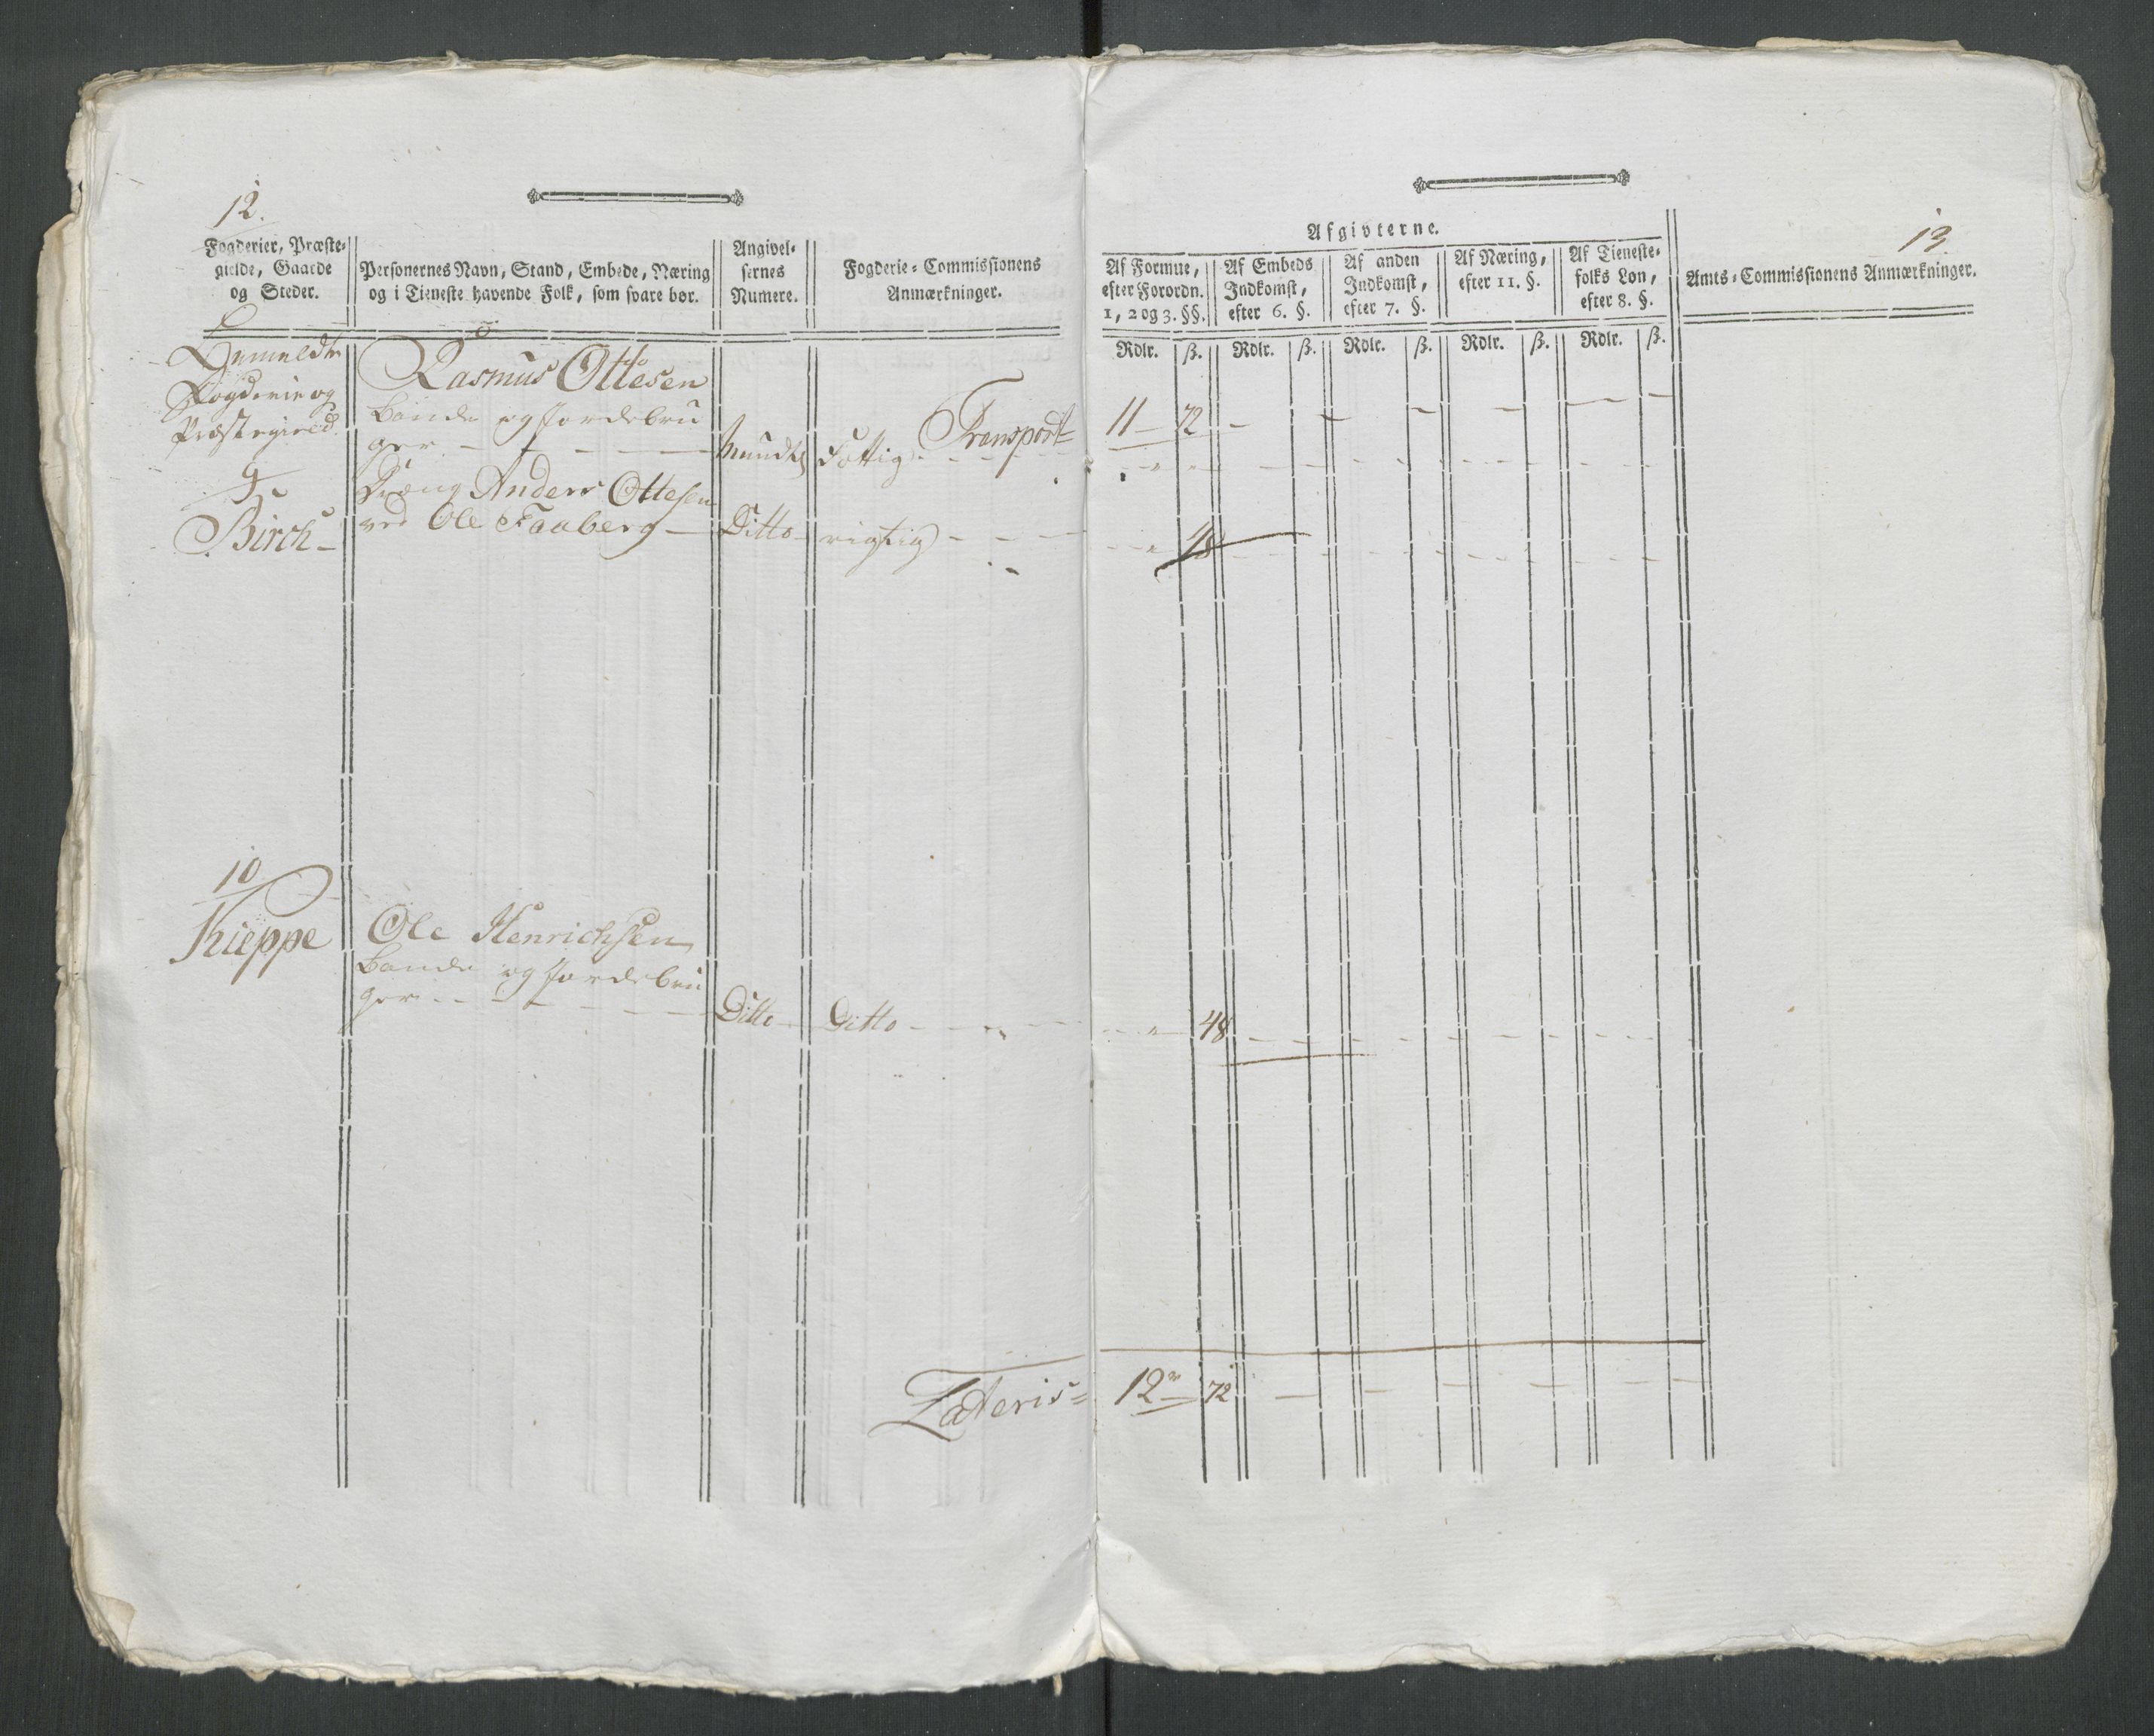 12.
Fogderier, Præste-
gielde, Gaarde
og Steder.
Personernes Navn, Stand, Embede, Næring
og i Tieneste havende Folk, som svare bør.
Angivel-
sernes
Numere.
Fogderie-Commissionens
Anmærkninger.
Fogderie og
Præstegield
Rasmus Ottesen
Bonde og Jordebru
ger
Transport
mundtl
fattig
9
Birch
Dreng Anders Ottesen
ved Ole Faaberg
Ditto
rigtig
10
Kieppe
Ole Henrichsen
Bonde og Jordebru
ger
Ditto
Ditto
Lateris
13
Afgivterne.
Af Formue,
efter Forordn.
1, 2 og 3. §§.
Af Embeds
Indkomst,
efter 6. §.
Af anden
Indkomst,
efter 7. §.
Af Næring,
efter 11. §.
Af Tieneste-
folks Løn,
efter 8. §.
Amts-Commissionens Anmærkninger.
Rdlr. ß. Rdlr. ß. Rdlr. ß. Rdlr. ß. Rdlr. ß.
11 72
48
48
12 72